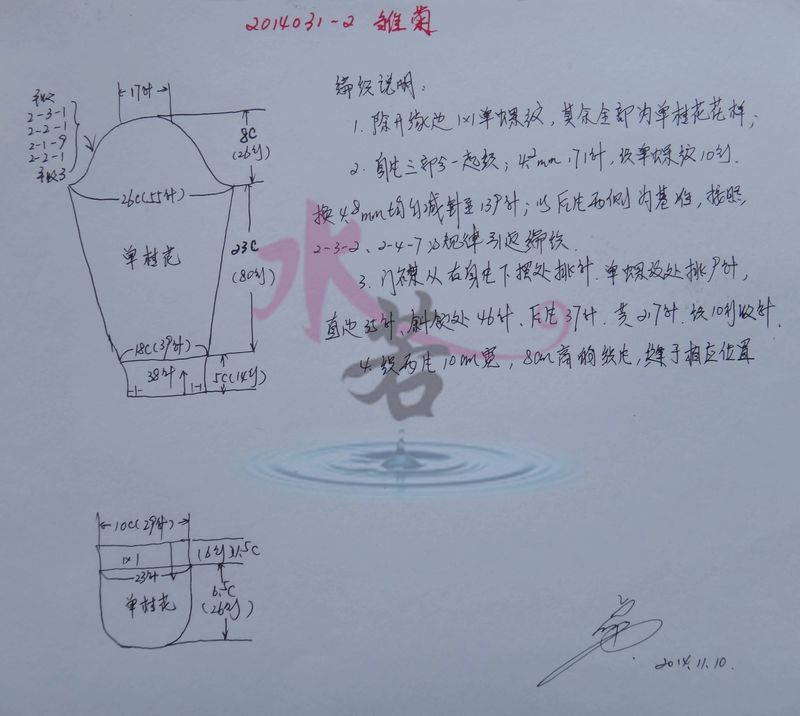 2014031-2 雏菊
编织说明：
1. 除开缘边 1×1 单螺纹，其余全部为单桂花花样；
2. 身片三部分一起织；4.2mm，171针，织单螺纹10行.
换4.8mm均匀减针至139针；以后片两侧为基准，按照
2-3-2、2-4-7的规律引返编织.
3. 门襟从右身片下摆处挑针. 单螺纹处挑9针，
直边35针、斜领处46针、后片37针. 共217针. 织10行收针.
4. 织两片10cm宽，8cm高的织片，缝于相应位置
平收
2-3-1
2-2-1
2-1-9
2-2-1
平收3
17针
8C
(26行)
26C(55针)
单桂花
23C
(80行)
18C(39针)
38针
5C(14行)
1-1
10C(29针)
1×1
(6行)1.5C
23针
单桂花
6.5C
(26行)
2014.11.10.
水若